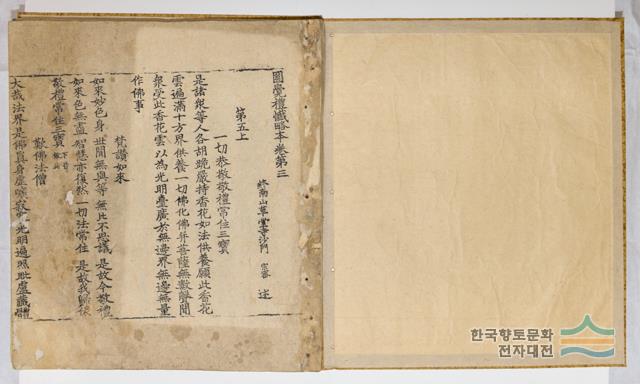 圓覺禮懺略本卷第三
終南山草堂寺沙門 宗密 述
第五上
一切恭敬敬禮常住三寶
是諸衆等人各胡跪嚴持香花如法供養願此香花
雲遍滿十方界供養一切佛化佛并菩薩無數聲聞
衆受此香花雲以為光明臺廣於無邊界無邊無量
作佛事
梵讚如來
如來妙色身 世間無與等 無比不思議 是故今敬禮
如來色無盡 智慧亦復然 一切法常住 是故我歸依
敬禮常住三寶
歎佛法僧
大哉法界是佛真身虛曠寂光明遍照毗盧藏體
한국향토문화
전자대전